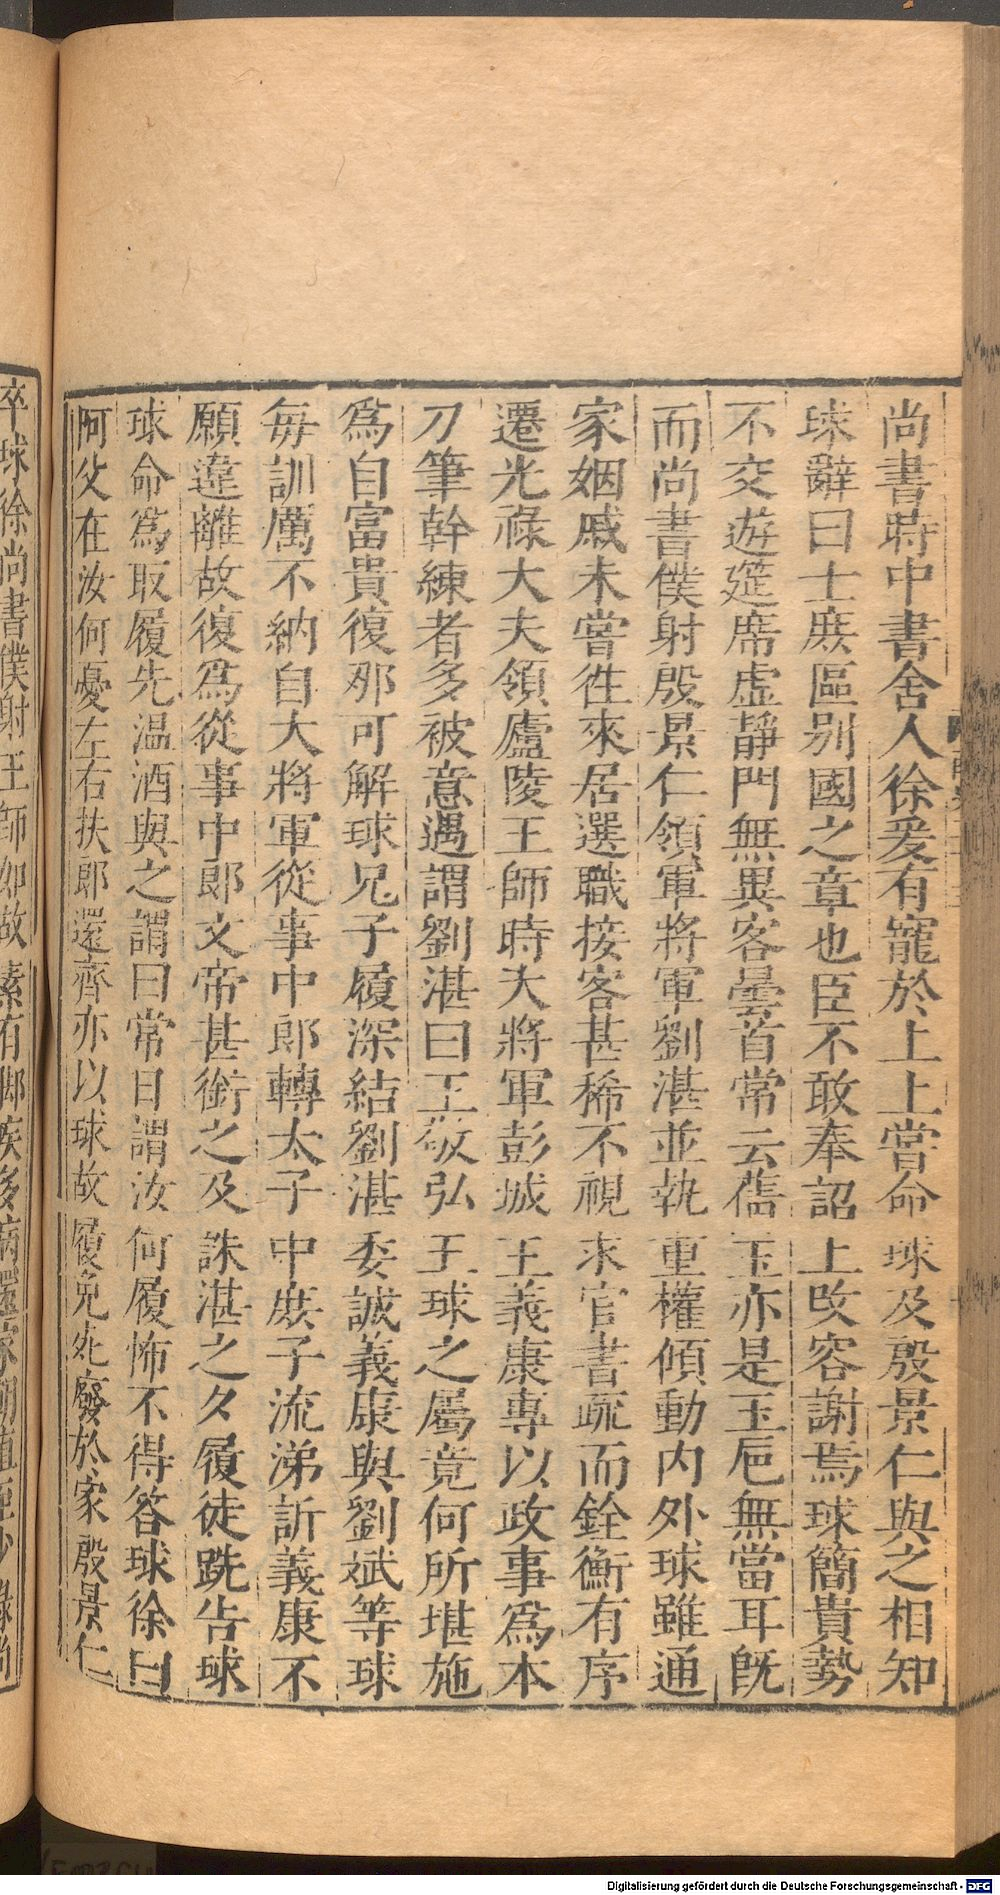 尚書時中書舍人徐爰有寵於上上嘗命球及殷景仁與之相知
球辭曰士庶區别國之章也臣不敢奉詔上改容謝焉球簡貴勢
不交遊筵席虛靜門無異客曇首常云蒨玉亦是玉巵無當耳旣
而尚書僕射殷景仁領軍將軍劉湛並執重權傾動内外球雖通
家姻戚未嘗徃來居選職接客甚稀不視求官書疏而銓衡有序
遷光祿大夫領廬陵王師時大將軍彭城王義康專以政事爲本
刀筆幹練者多被意遇謂劉湛曰王敬弘王球之屬竟何所堪施
爲自富貴復那可解球兄子履深結劉湛委誠義康與劉斌等球
每訓厲不納自大將軍從事中郎轉太子中庶子流涕訴義康不
願違離故復爲從事中郎文帝甚銜之及誅湛之夕履徒跣告球
球命爲取履先温酒與之謂曰常日謂汝何履怖不得答球徐曰
阿父在汝何憂左右扶郎還齊亦以球故履免死廢於家殷景仁
卒球徐尚書僕射王師如故素有脚疾多病還家朝直至少錄尚
Digitalisierung gefördert durch die Deutsche Forschungsgemeinschaft - DFG